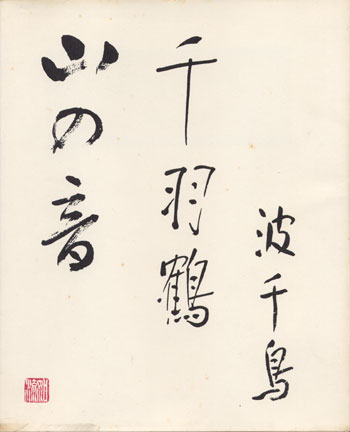 波千鳥
千羽鶴
山の音